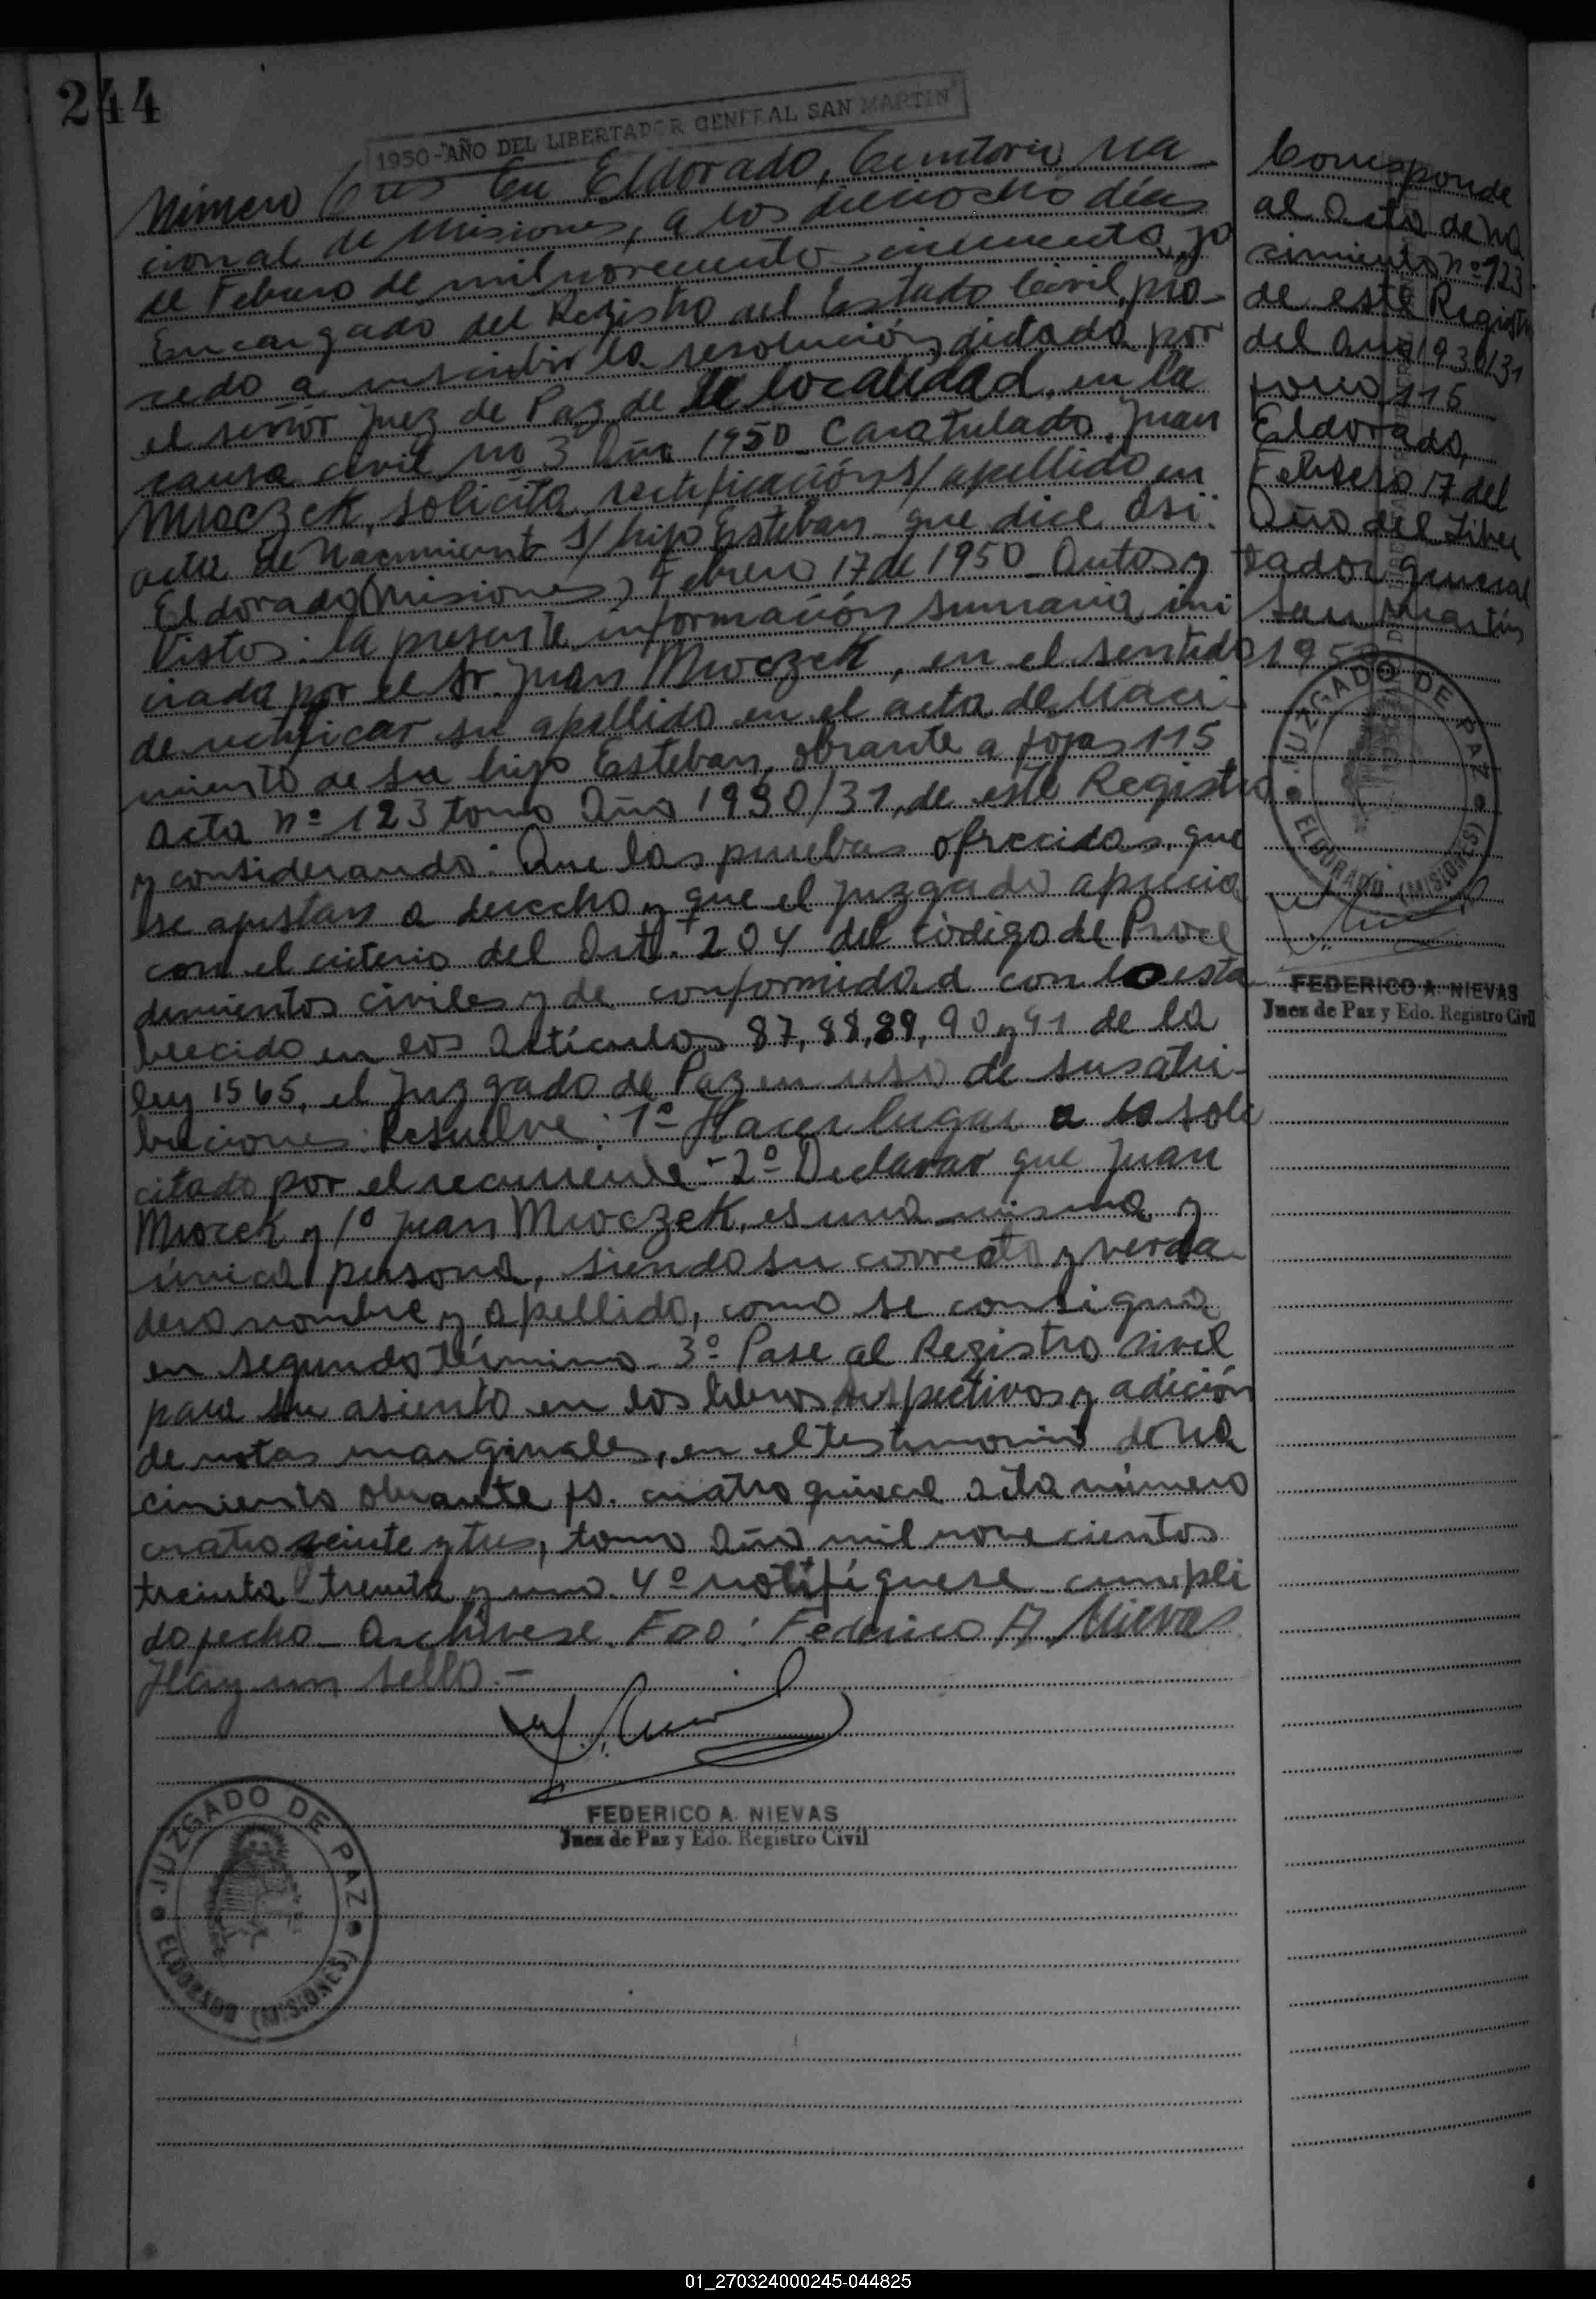 244
1950-AÑO DEL LIBERTADOR GENERAL SAN MARTIN
Número Tres En Eldorado, Territorio na
cional de Misiones, a los dieciocho días
de Febrero de mil novecientos cincuenta, yo
Encargado del Registro del Estado Civil, pro-
cedo a inscribir la resolución dictada por
el señor Juez de Paz de la localidad, en la
causa civil no 3 Año 1950 Caratulado, Juan
Mroczek, solicita rectificación s/ apellido en
acta de Nacimiento s/ hijo Esteban que dice Así:
Eldorado (Misiones) Febrero 17 de 1950 Autos y
Vistos: la presente información sumaria ini
ciada por el Sr. Juan Mroczek, en el sentido
de rectificar su apellido en el acta de Naci-
miento de su hijo Esteban, obrante a fojas 115
Acta nº 123 tomo Año 1930/31, de este Registro
y considerando: Que las pruebas ofrecidas, que
se ajustan a derecho y que el juzgado aprecia
con el criterio del Art. 204 del código de Proce
dimientos civiles y de conformidad con lo esta
blecido en los Artículos 87, 88, 89, 90 y 91 de la
ley 1565, el Juzgado de Paz en uso de sus atri-
buciones: Resuelve: 1º Hacer lugar a lo soli
citado por el recurrente - 2º Declarar que Juan
Mrocek y/o Juan Mroczek, es una misma y
única persona, siendo su correcto y verda-
dero nombre y apellido, como se consigna
en segundo término - 3º Pase al Registro Sivil
para su asiento en los libros respectivos y adición
de notas marginales, en el testimonio de Na
cimiento obrante fs. cuatro quince acta número
cuatro veinte y tres, tomo Año mil novecientos
treinta treinta y uno. 4º notifíquese cumpli
do fecho - Archívese. Fdo: Federico A Nievas
Hay un sello.-
FEDERICO A. NIEVAS
Juez de Paz y Edo. Registro Civil
JUZGADO DE PAZ
ELDORADO (MISIONES)
Corresponde
al Acta de Na
cimiento nº 123
de este Registro
del Año 1930/31
folio 115
Eldorado,
Febrero 17 del
Año del Liber
tador general
San Martín
1950
JUZGADO DE PAZ
ELDORADO (MISIONES)
FEDERICO A. NIEVAS
Juez de Paz y Edo. Registro Civil
01_270324000245-044825